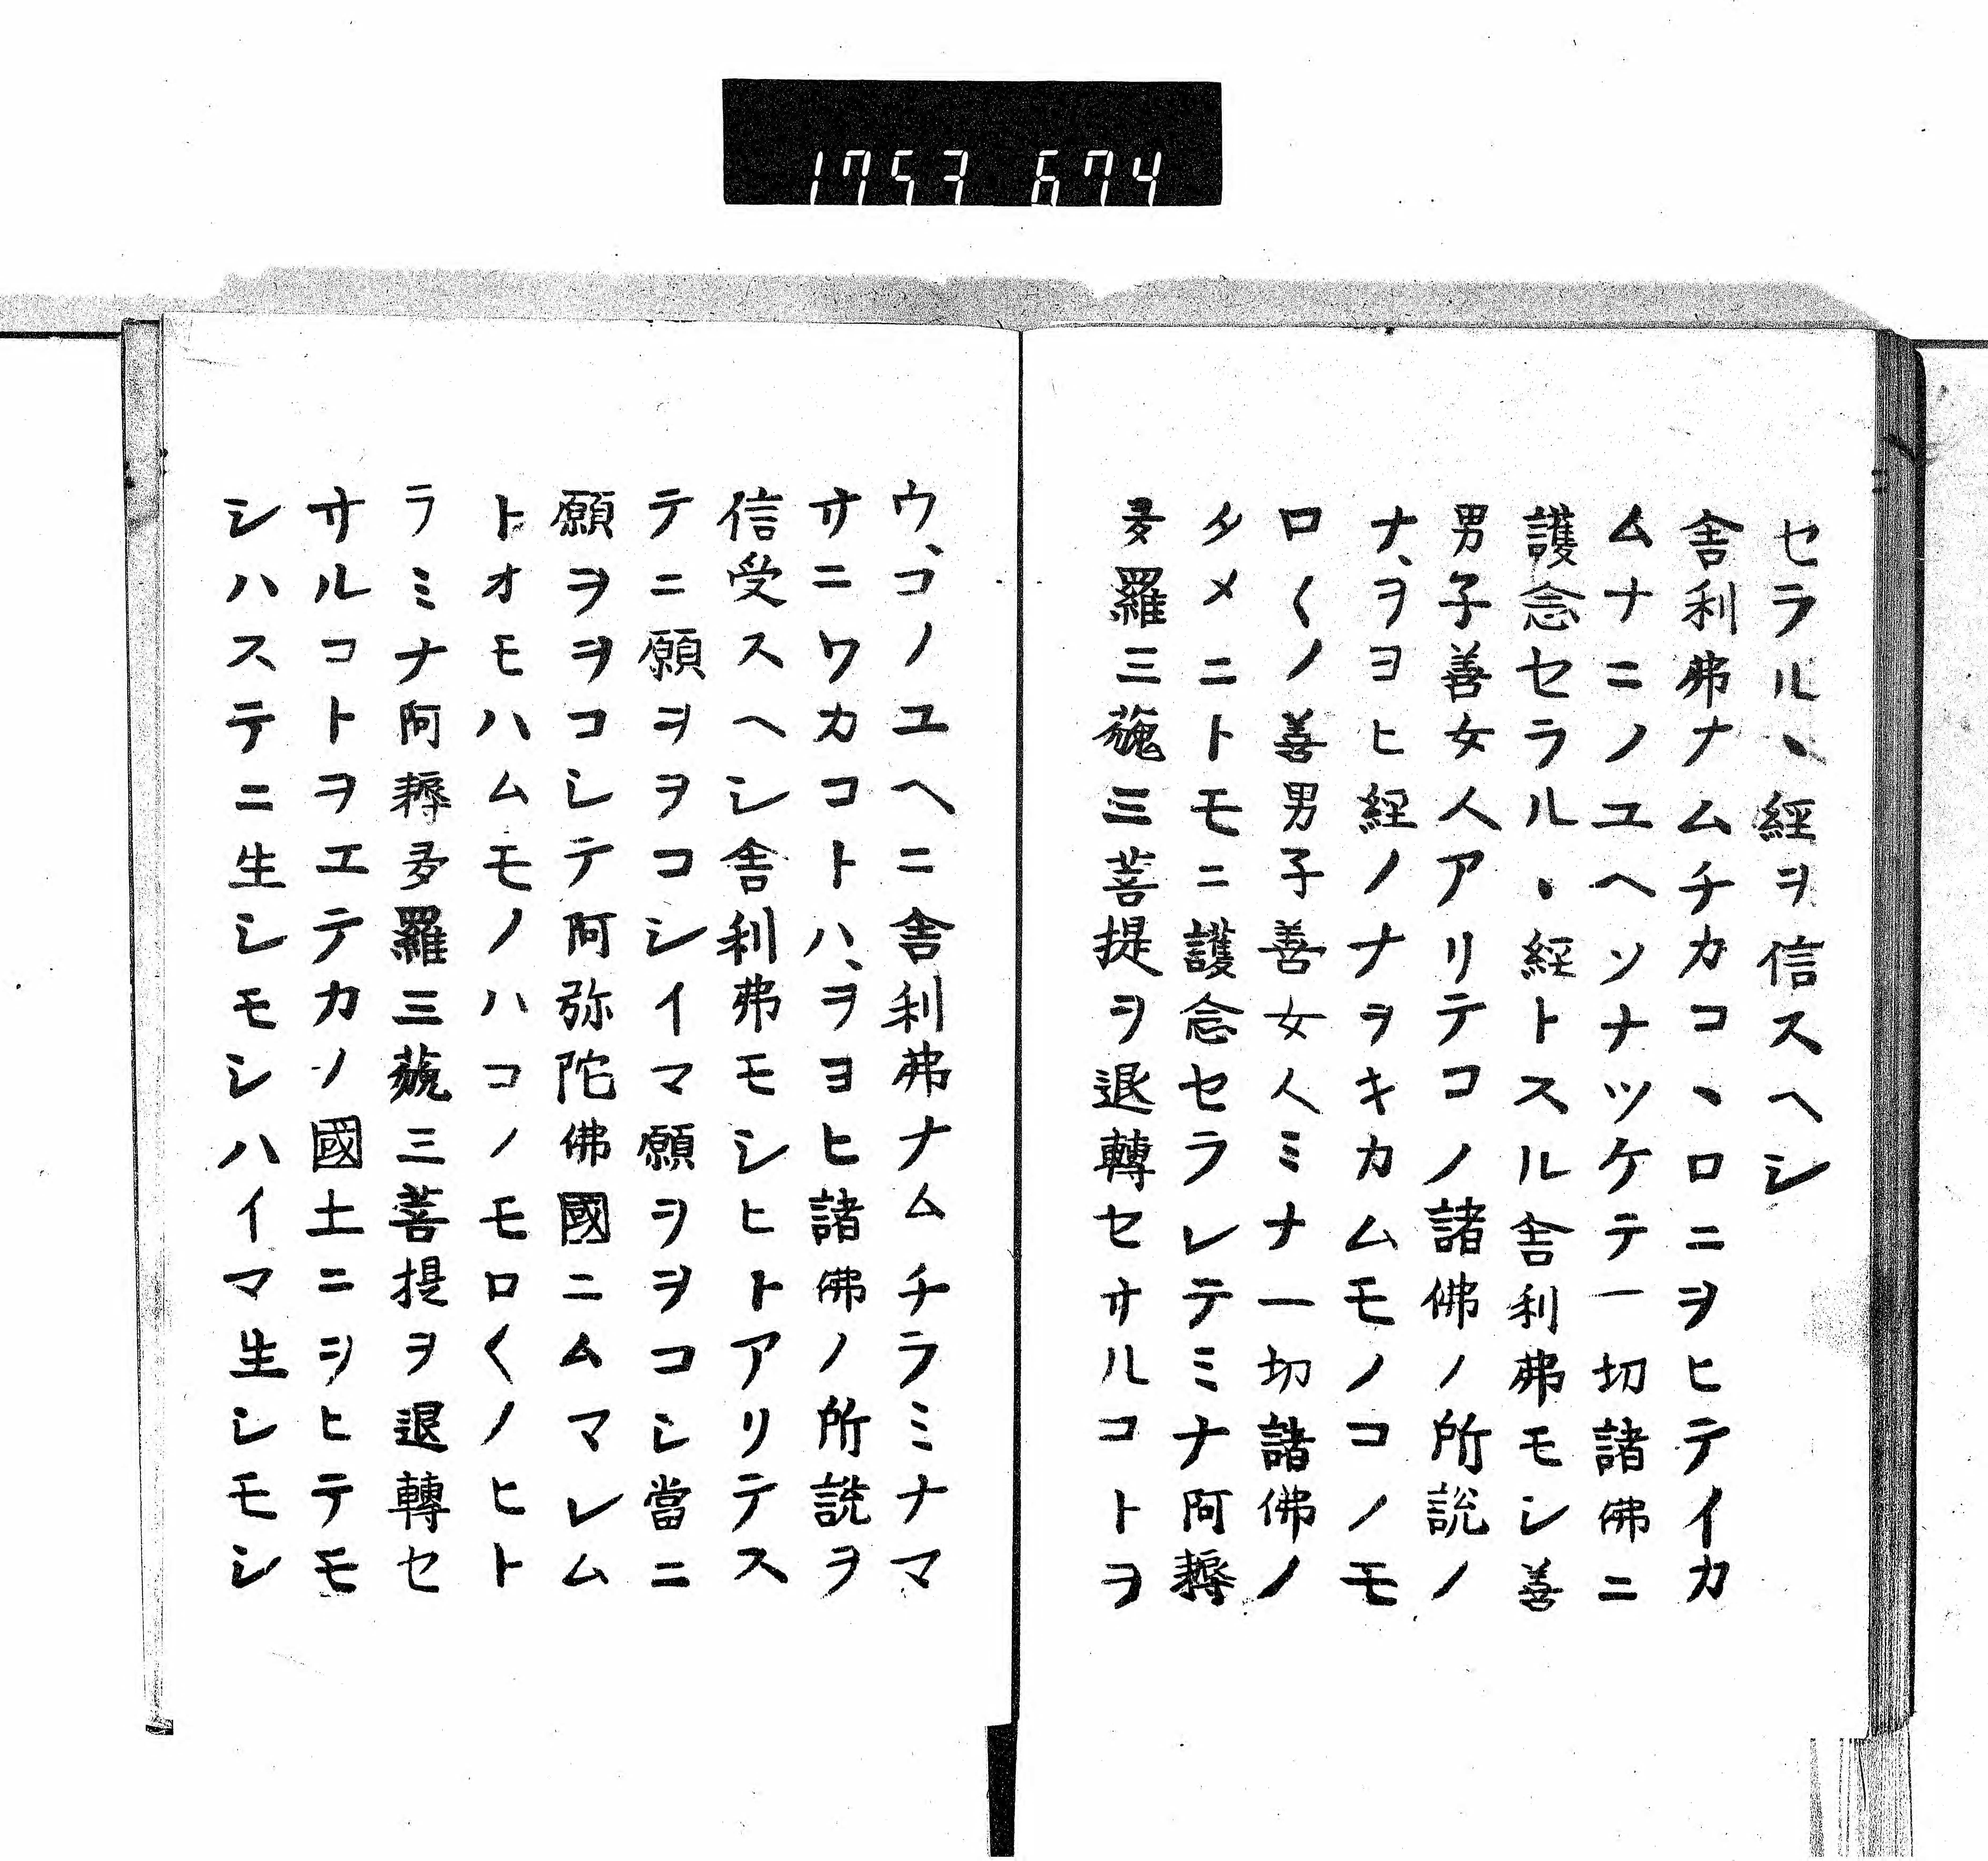 1753 674
セラル、經ヲ信スヘシ
舎利弗ナムチカコヽロニヲヒテイカ
ムナニノユヘソナツケテ一切諸佛ニ
護念セラルヽ經トスル舎利弗モシ善
男子善女人アリテコノ諸佛ノ所説ノ
ナ、ヲヨヒ經ノナヲキカムモノコノモ
ロ〱ノ善男子善女人ミナ一切諸佛ノ
タメニトモニ護念セラレテミナ阿耨
多羅三藐三菩提ヲ退轉セサルコトヲ
ウ、コノユヘニ舎利弗ナムチラミナマ
サニワカコトハ、ヲヨヒ諸佛ノ所説ヲ
信受スヘシ舎利弗モシヒトアリテス
テニ願ヲヲコシイマ願ヲヲコシ當ニ
願ヲヲコシテ阿弥陀佛國ニムマレム
トオモハムモノハコノモロ〱ノヒト
ラミナ阿耨多羅三藐三菩提ヲ退轉セ
サルコトヲエテカノ國土ニヲヒテモ
シハステニ生シモシハイマ生シモシ